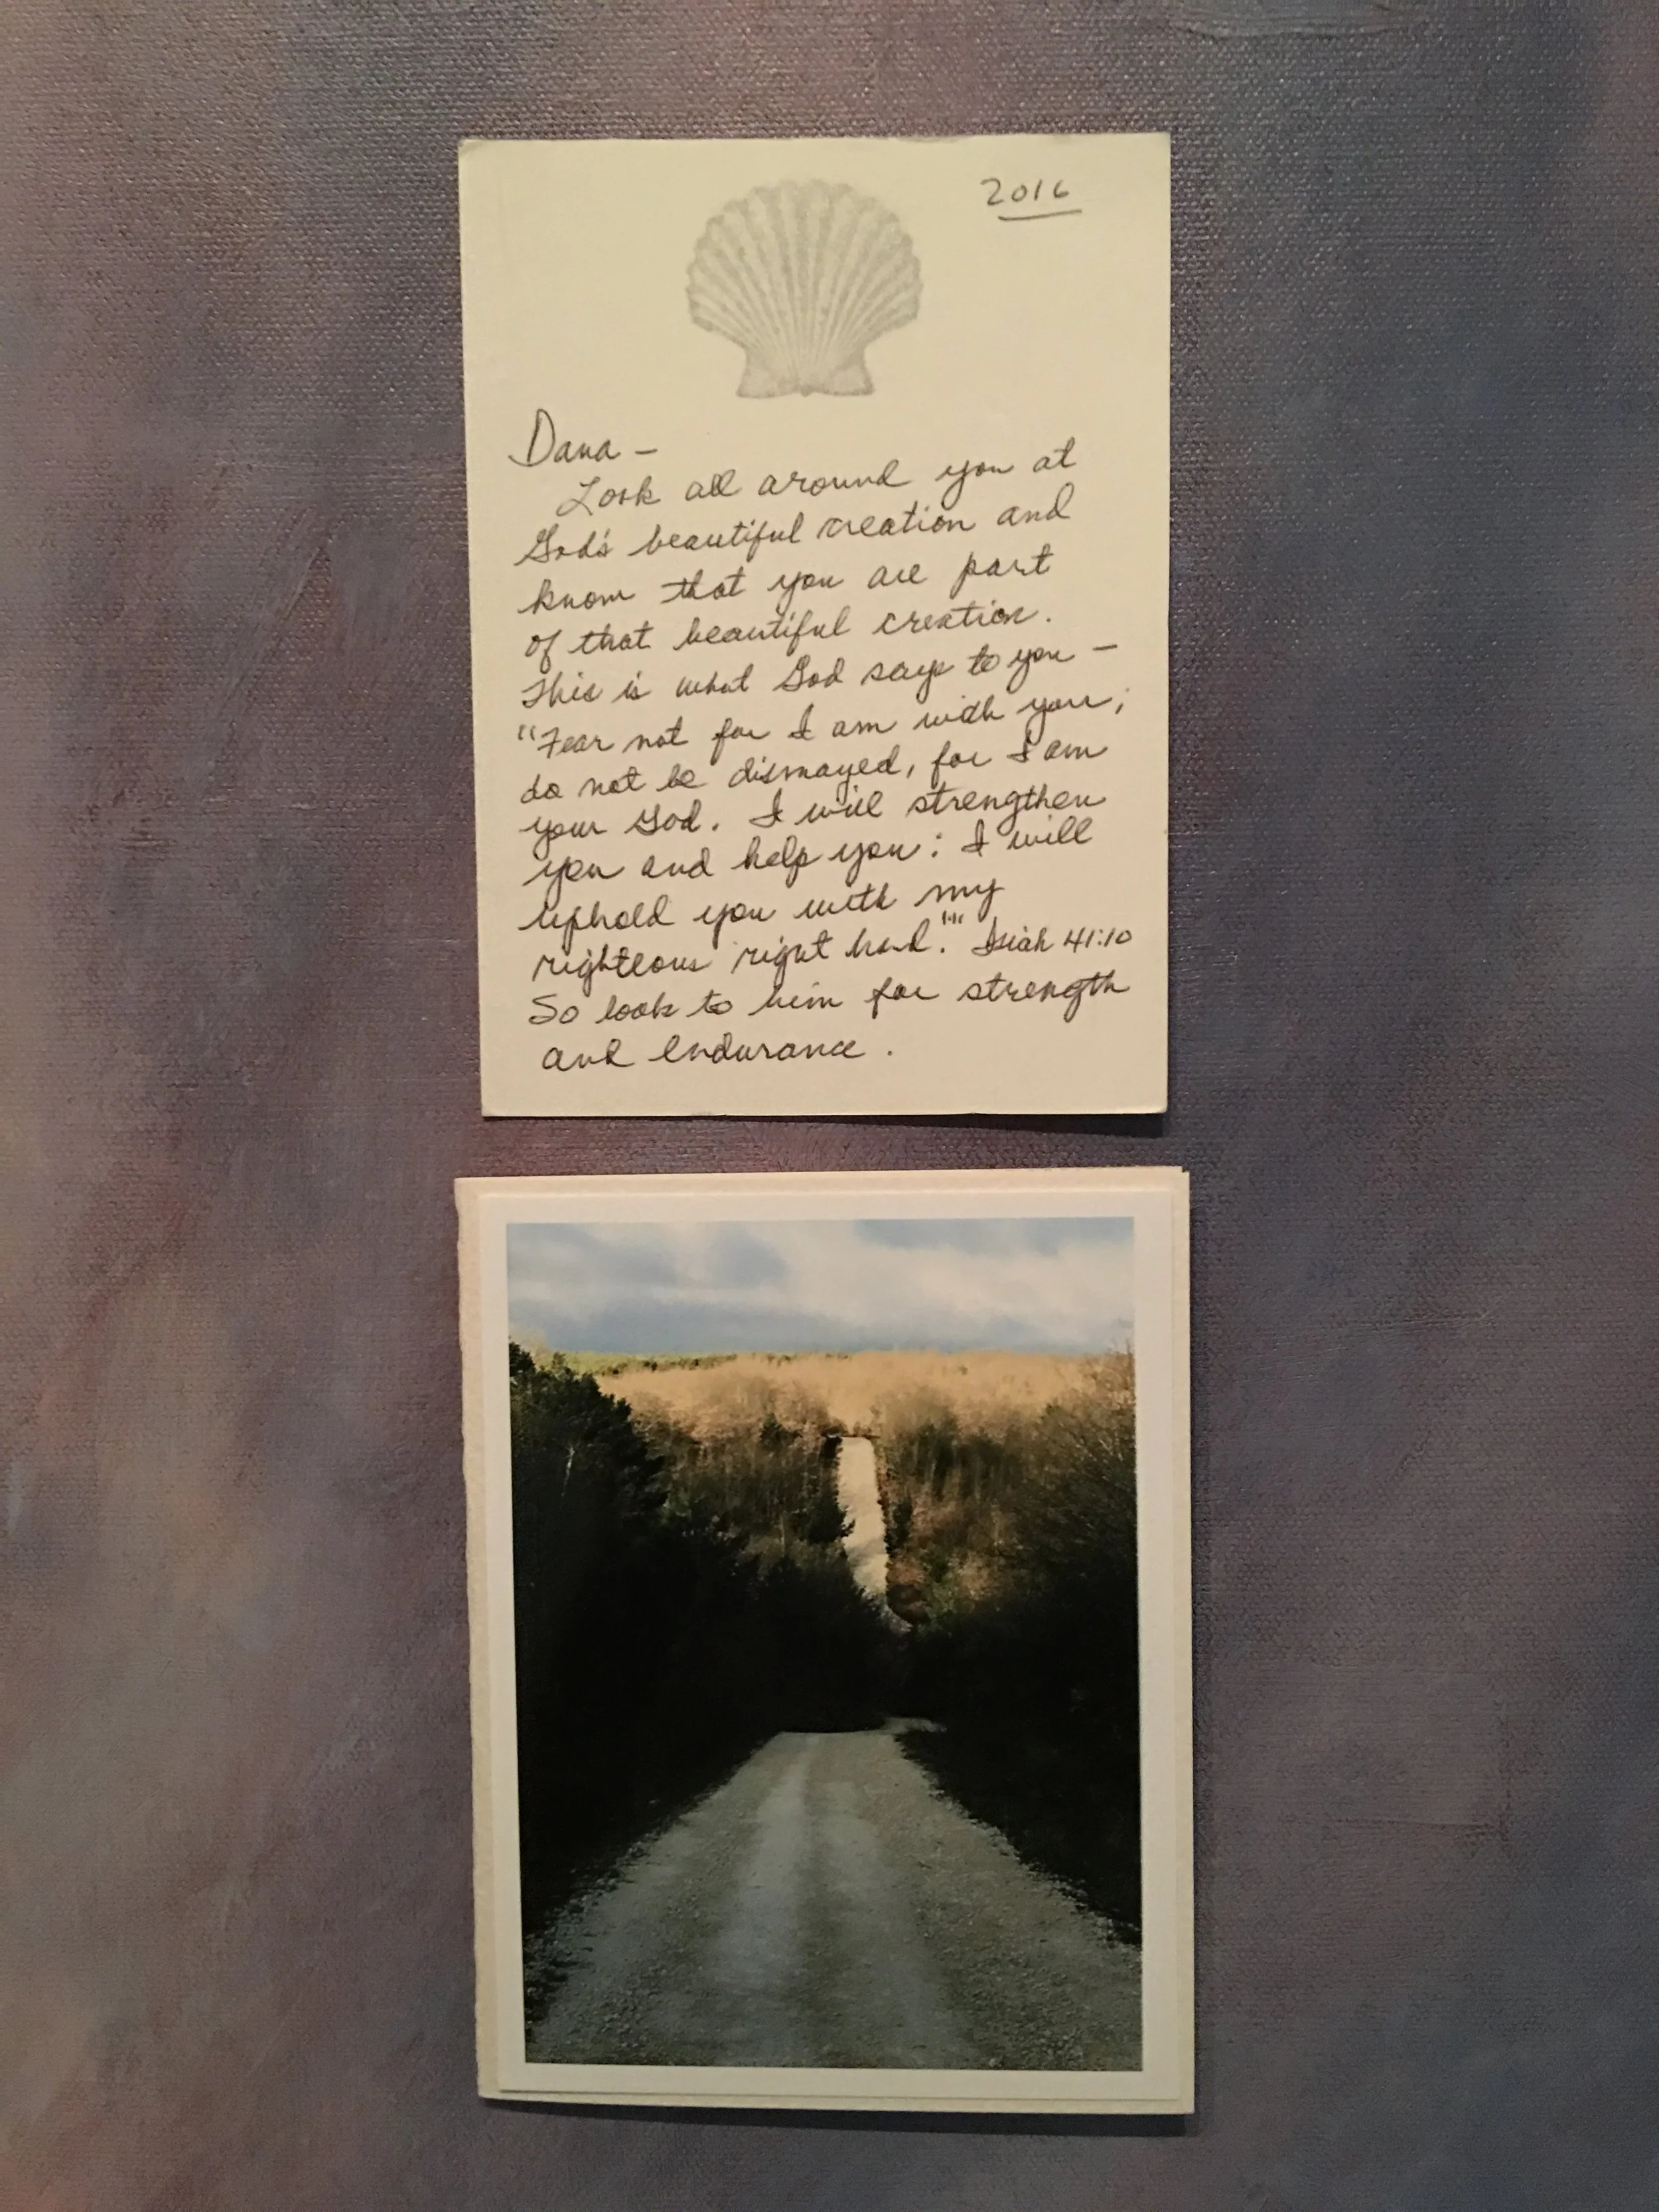 2016
Dana –
Look all around you at
God's beautiful creation and
know that you are part
of that beautiful creation.
This is what God says to you –
"Fear not for I am with you;
do not be dismayed, for I am
your God. I will strengthen
you and help you; I will
uphold you with my
righteous right hand.'" Isiah 41:10
So look to him for strength
and endurance.